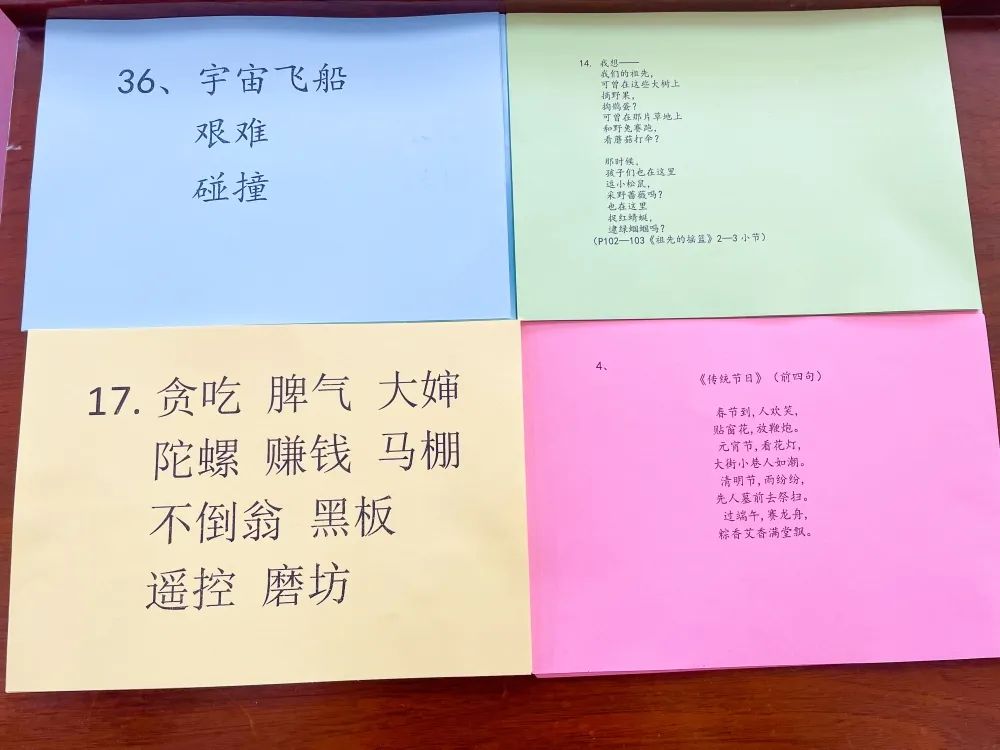 36、宇宙飞船
艰难
碰撞
14. 我想——
我们的祖先,
可曾在这些大树上
摘野果,
掏鹊蛋?
可曾在那片草地上
和野兔赛跑,
看蘑菇打伞?
那时候,
孩子们也在这里
逗小松鼠,
采野蔷薇吗?
也在这里
捉红蜻蜓,
逮绿蝈蝈吗?
(P102—103《祖先的摇篮》2—3 小节)
17. 贪吃 脾气 大婶
陀螺 赚钱 马棚
不倒翁 黑板
遥控 磨坊
4、
《传统节日》(前四句)
春节到,人欢笑,
贴窗花,放鞭炮。
元宵节,看花灯,
大街小巷人如潮。
清明节,雨纷纷,
先人墓前去祭扫。
过端午,赛龙舟,
粽香艾香满堂飘。